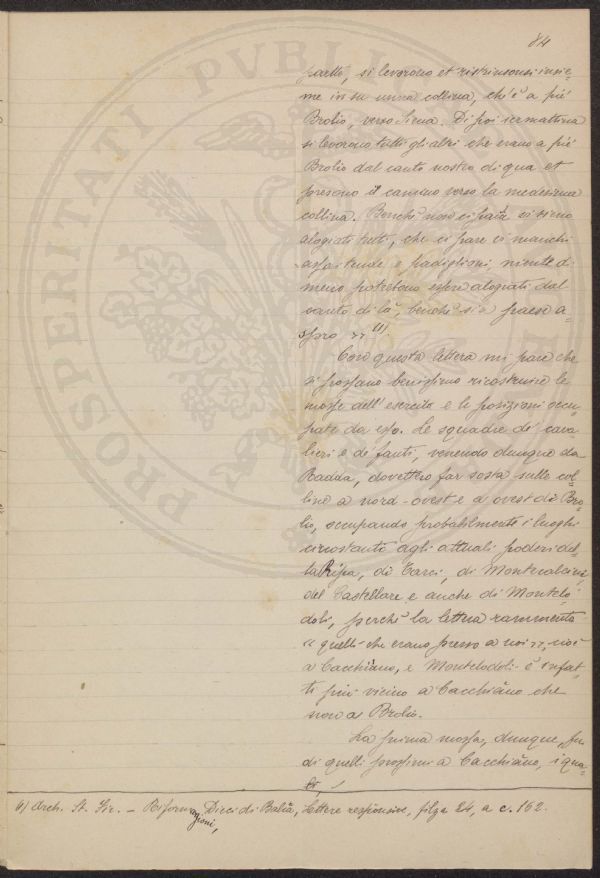 84
paetto, si levorono et ristrinsonsi insie-
me in su unna collina, ch'è a piè
Brolio, verso Siena. Di poi sermattina
si levorono tutti gli altri che erano a piè
Brolio dal canto nostro di qua et
presono il camino verso la medesima
collina. Benchè non ci paia vi sieno
alogiati tutti, che ci pare vi manchi
assai tende e padiglioni, niente di
meno potrebono essere alogiati dal
canto di là, benchè sia paese a-
spro >> (1).
Con questa lettera mi pare che
si possano benissimo ricostruire le
mosse dell'esercito e le posizioni occu-
pate da esso. Le squadre de' cava-
lieri e de' fanti, venendo dunque da
Radda, dovettero far sosta sulle col-
line a nord-ovest e a ovest di Bro-
lio, occupando probabilmente i luoghi
circostanti agli attuali poderi del-
la Ripa, di Tarci, di Montecalvini,
del Castellare e anche di Montelo-
doli, perchè la lettera rammenta
<< quelli che erano presso a noi >>, cioè
a Cacchiano, e Montelodoli è infat-
ti più vicino a Cacchiano che
non a Brolio.
La prima mossa, dunque, fu
di quelli prossimi a Cacchiano, i qua-
li,
(1) Arch. St. Fir. - Riformagioni, Dieci di Balìa, Lettere responsive, filza 24, a c. 162.
PROSPERITATI PVBLI